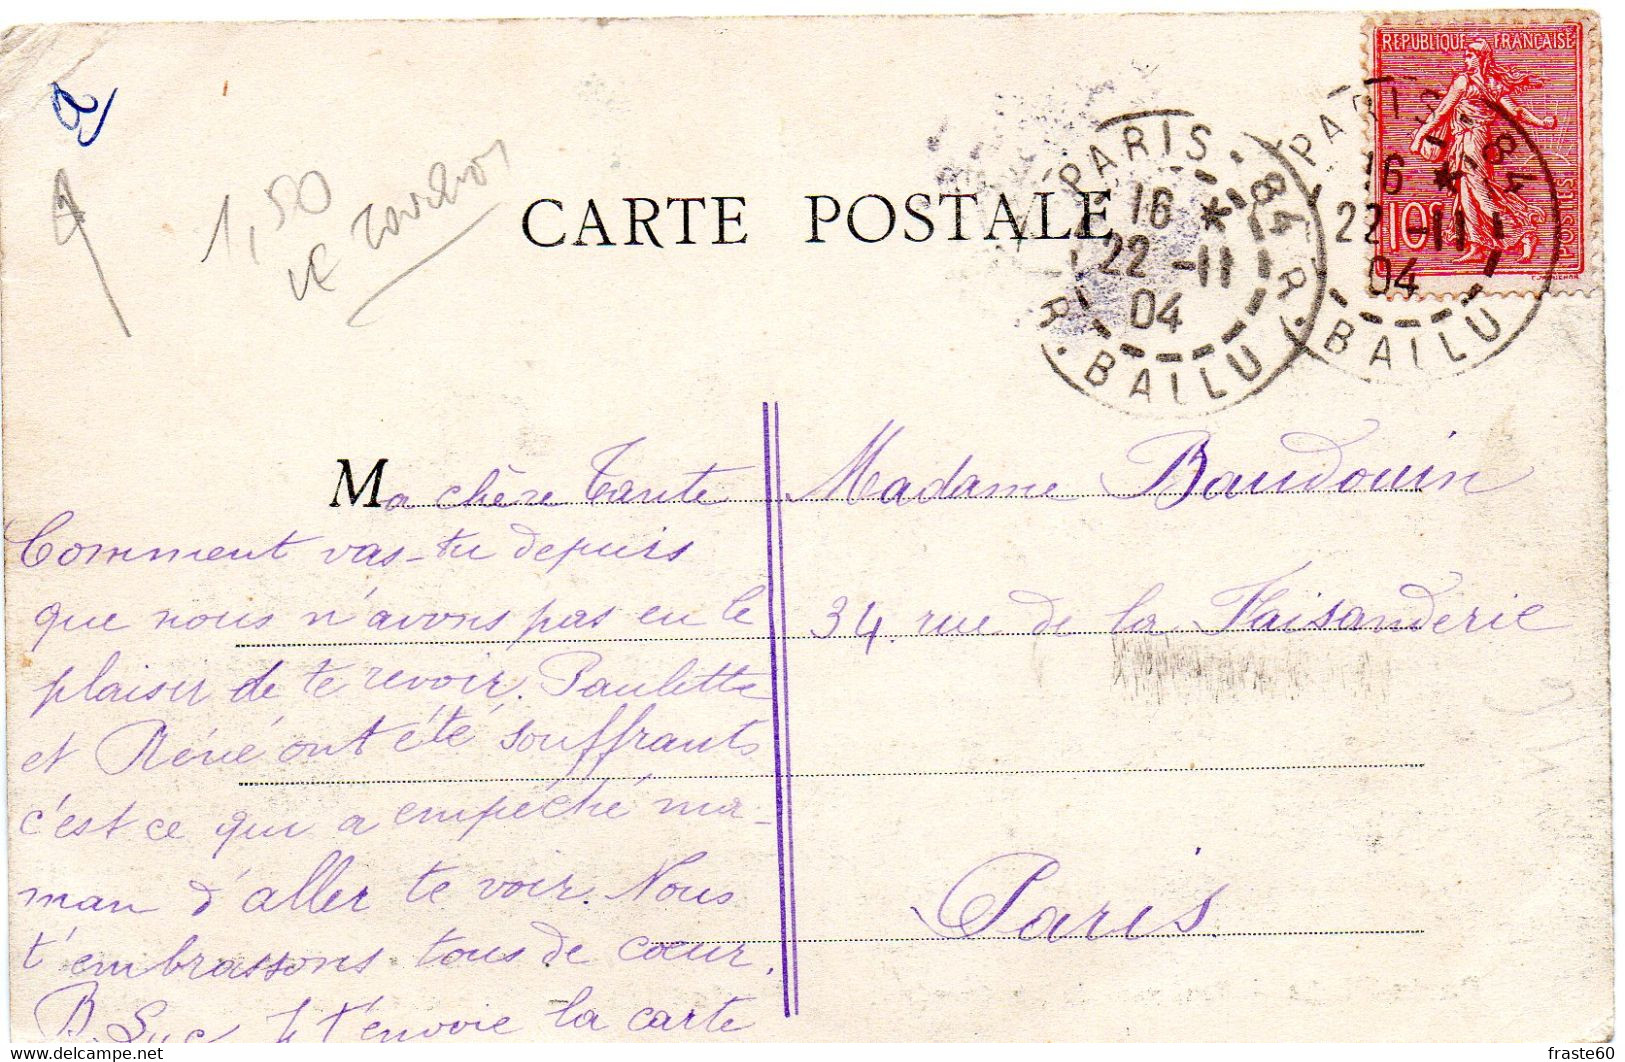 1,50
CARTE POSTALE
REPUBLIQUE FRANÇAISE
10c
POSTES
PARIS . 84
16 *
22 -11
04
R. BALLU
PARIS . 84
16 *
22 -11
04
R. BALLU
Ma chère Tante
Comment vas-tu depuis
que nous n'avons pas eu le
plaisir de te revoir. Paulette
et Réné ont été souffrants
c'est ce qui a empéché ma-
man d'aller te voir. Nous
t'embrassons tous de cœur.
t'envoie la carte
Madame Baudouin
34. rue de la Faisanderie
Paris
fraste60